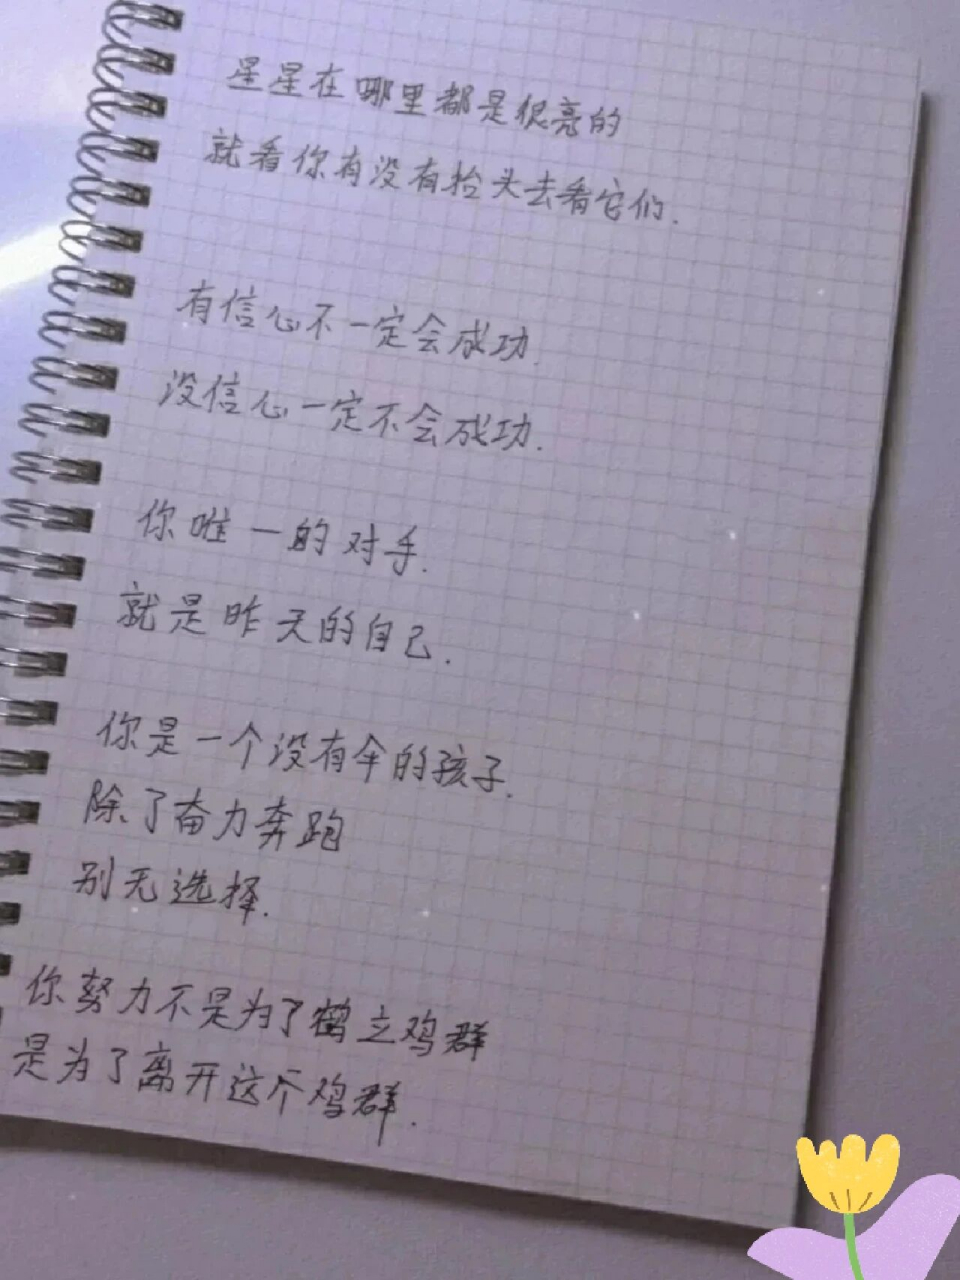 星星在哪里都是很亮的
就看你有没有抬头去看它们.
有信心不一定会成功.
没信心一定不会成功.
你唯一的对手.
就是昨天的自己.
你是一个没有伞的孩子.
除了奋力奔跑
别无选择.
你努力不是为了鹤立鸡群
是为了离开这个鸡群.